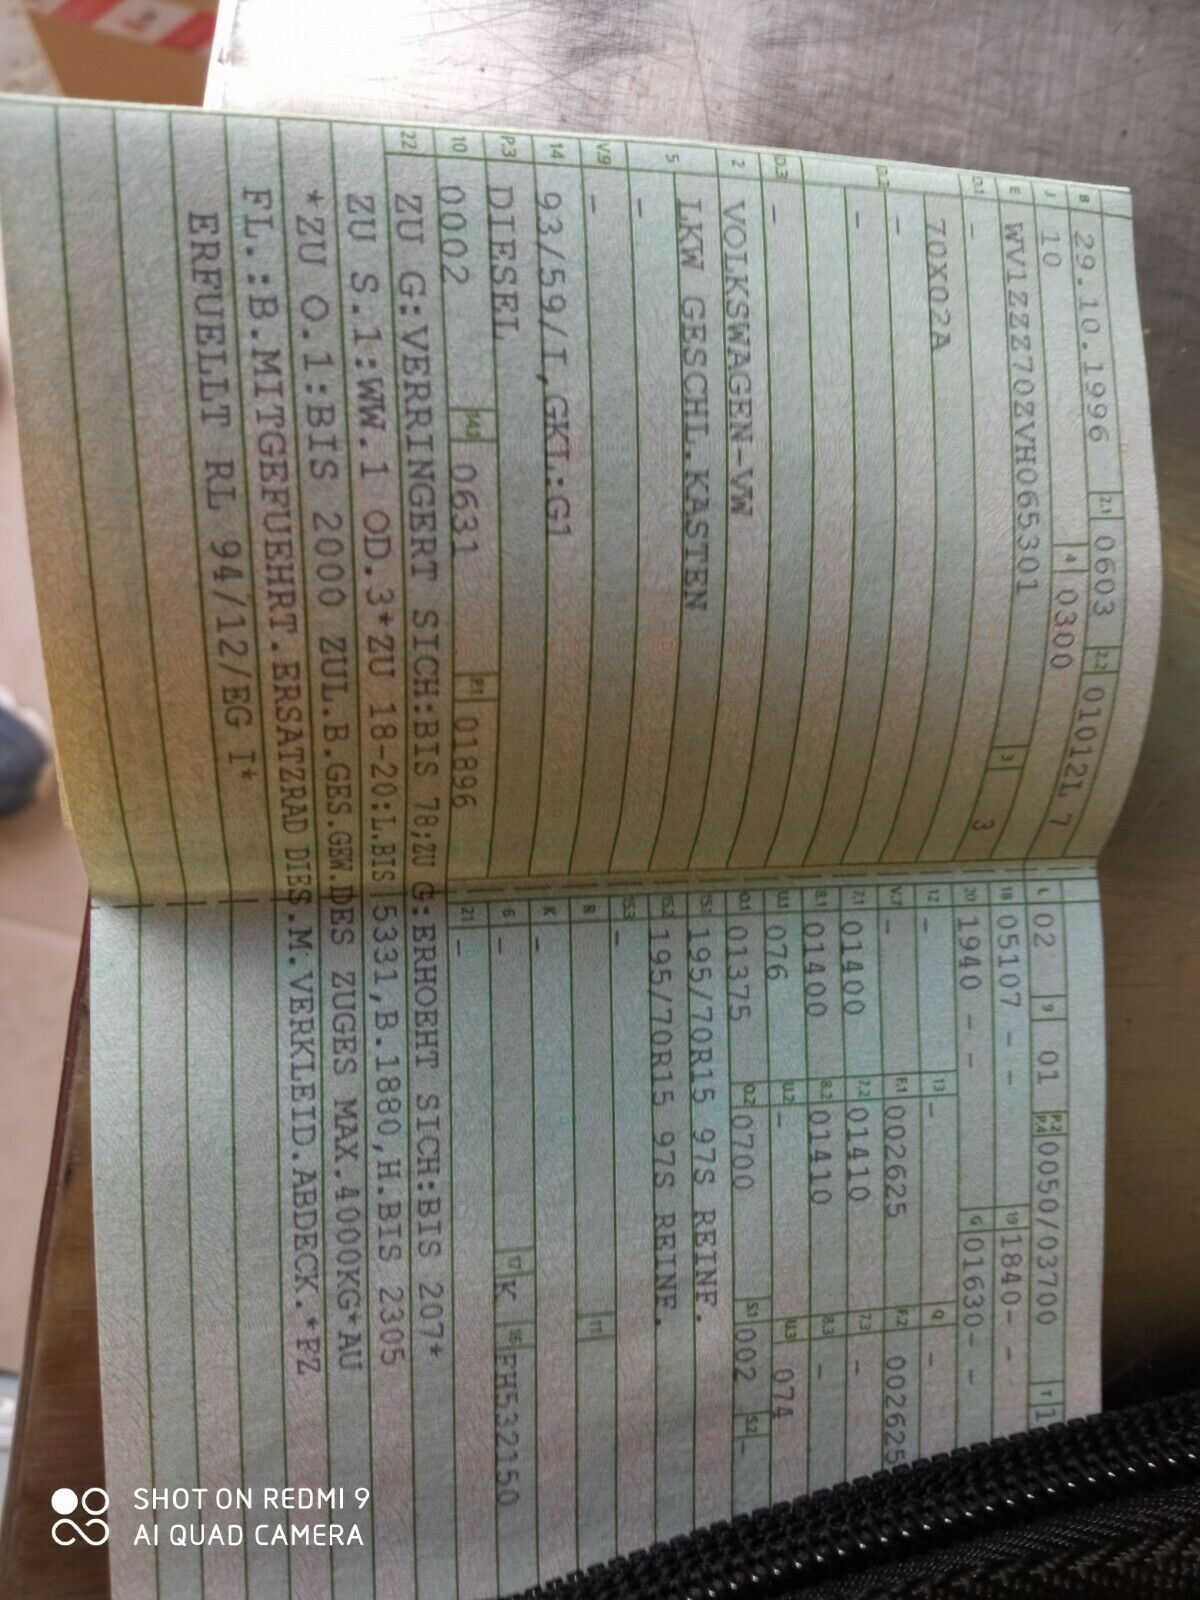 B 29.10.1996 2.1 0603 2.2 01012L 7
J 10 4 0300
E WV1ZZZ70ZVH065301 3 3
D.1 -
70X02A
D.2 -
-
D.3 -
2 VOLKSWAGEN-VW
5 LKW GESCHL.KASTEN
-
V.9 -
14 93/59/I,GKL:G1
P.3 DIESEL
10 0002 14.1 0631 P.1 01896
22 ZU G:VERRINGERT SICH:BIS 78;ZU G:ERHOEHT SICH:BIS 207*
ZU S.1:WW.1 OD.3*ZU 18-20:L.BIS 5331,B.1880,H.BIS 2305
*ZU O.1:BIS 2000 ZUL.B.GES.GEW.DES ZUGES MAX.4000KG*AU
FL.:B.MITGEFUEHRT.ERSATZRAD DIES.M.VERKLEID.ABDECK.*FZ
ERFUELLT RL 94/12/EG I*
L 02 9 01 P.2 P.4 0050/03700 T 1
18 05107 - - 19 1840- -
20 1940 - - G 01630- -
12 - 13 - Q -
V.7 - F.1 002625 F.2 002625
7.1 01400 7.2 01410 7.3 -
8.1 01400 8.2 01410 8.3 -
U.1 076 U.2 - U.3 074
O.1 01375 O.2 0700 S.1 002 S.2 -
15.1 195/70R15 97S REINF.
15.2 195/70R15 97S REINF.
15.3 -
R 11
K -
6 - 17 K 16 EH532150
21 -
SHOT ON REDMI 9
AI QUAD CAMERA